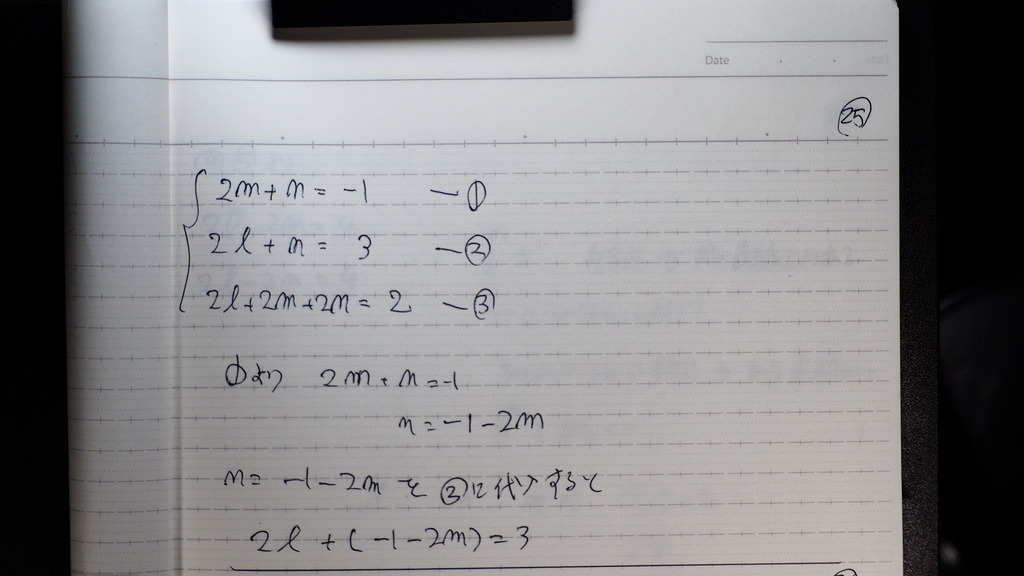 Date
㉕
2m+n = -1 ―①
2l + n = 3 ―②
2l+2m+2n = 2 ―③
①より 2m+n=-1
n=-1-2m
n= -1-2m を ②に代入すると
2l +(-1-2m)=3